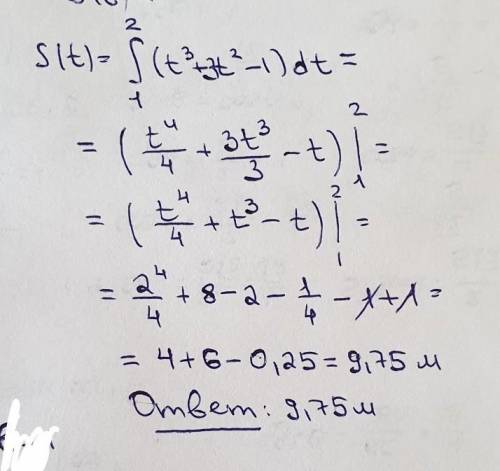 S(t) = ∫₁² (t³+3t²-1)dt =
= (t⁴/4 + 3t³/3 - t) |₁² =
= (t⁴/4 + t³ - t) |₁² =
= 2⁴/4 + 8 - 2 - 1/4 - 1 + 1 =
= 4 + 6 - 0,25 = 9,75 м
Ответ: 9,75 м